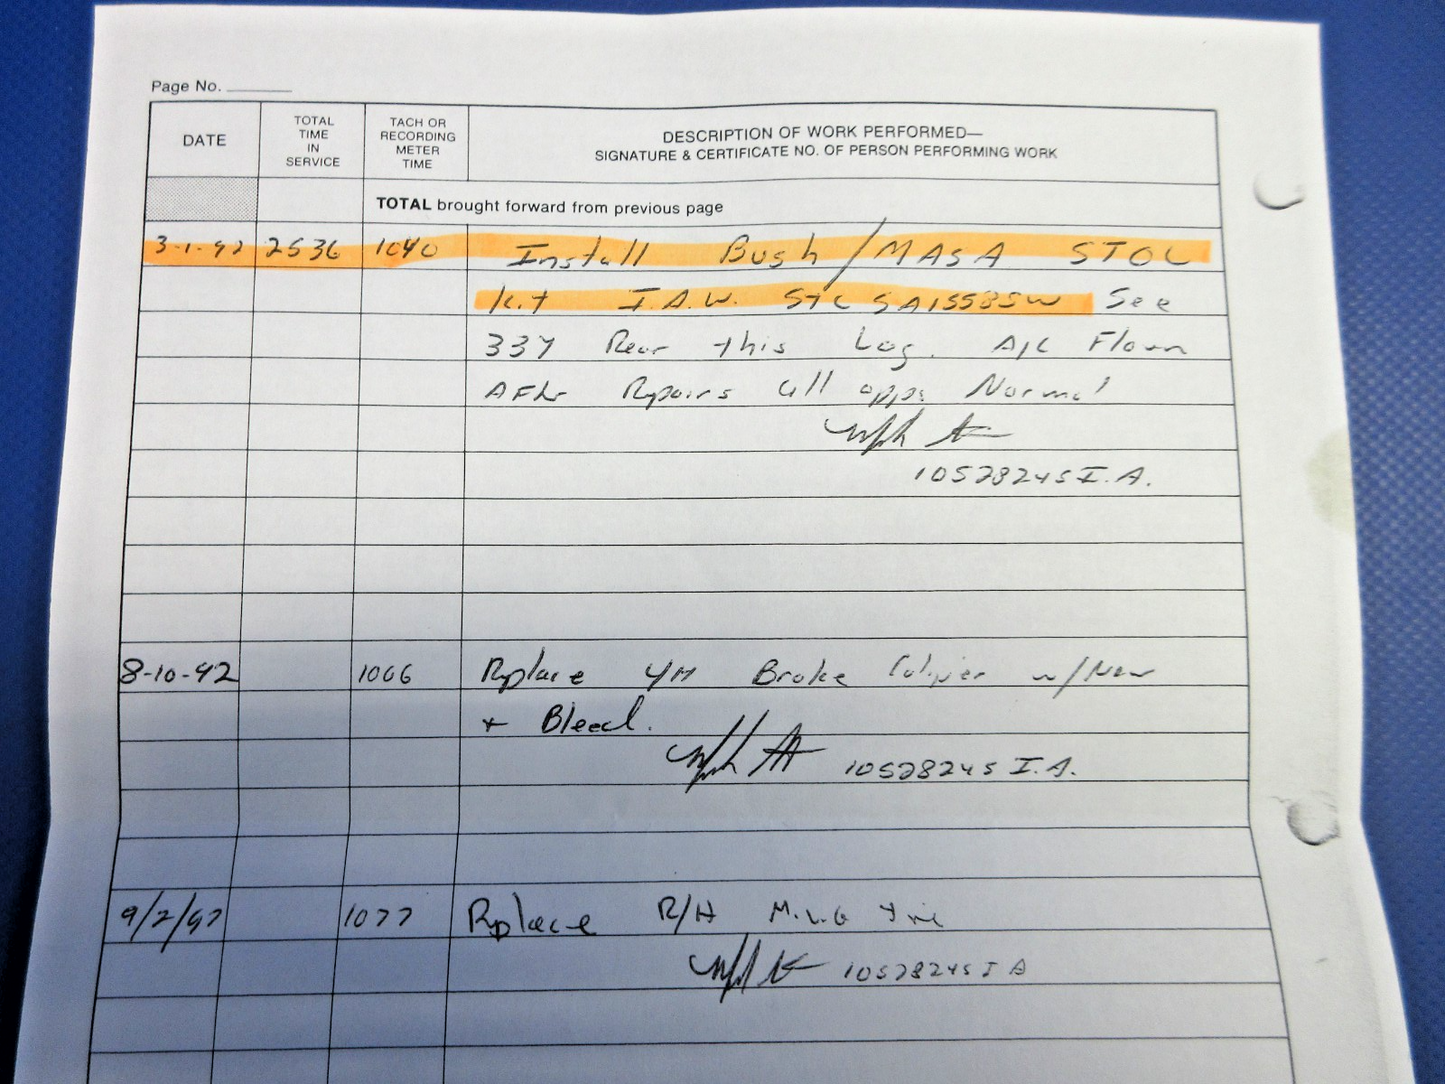 Page No.
DATE
TOTAL
TIME
IN
SERVICE
TACH OR
RECORDING
METER
TIME
DESCRIPTION OF WORK PERFORMED—
SIGNATURE & CERTIFICATE NO. OF PERSON PERFORMING WORK
TOTAL brought forward from previous page
3-1-92 2536 1040 Install Bush/MASA STOL
Kit I.A.W. STC SA1558SW See
337 Rear this Log. A/C Flown
AFtr Repairs all opps Normal
10528245 I.A.
8-10-92 1066 Replace Brake Caliper w/New
+ Bleed.
10528245 I.A.
9/2/92 1077 Replace R/H M.L.G Tire
10528245 I A